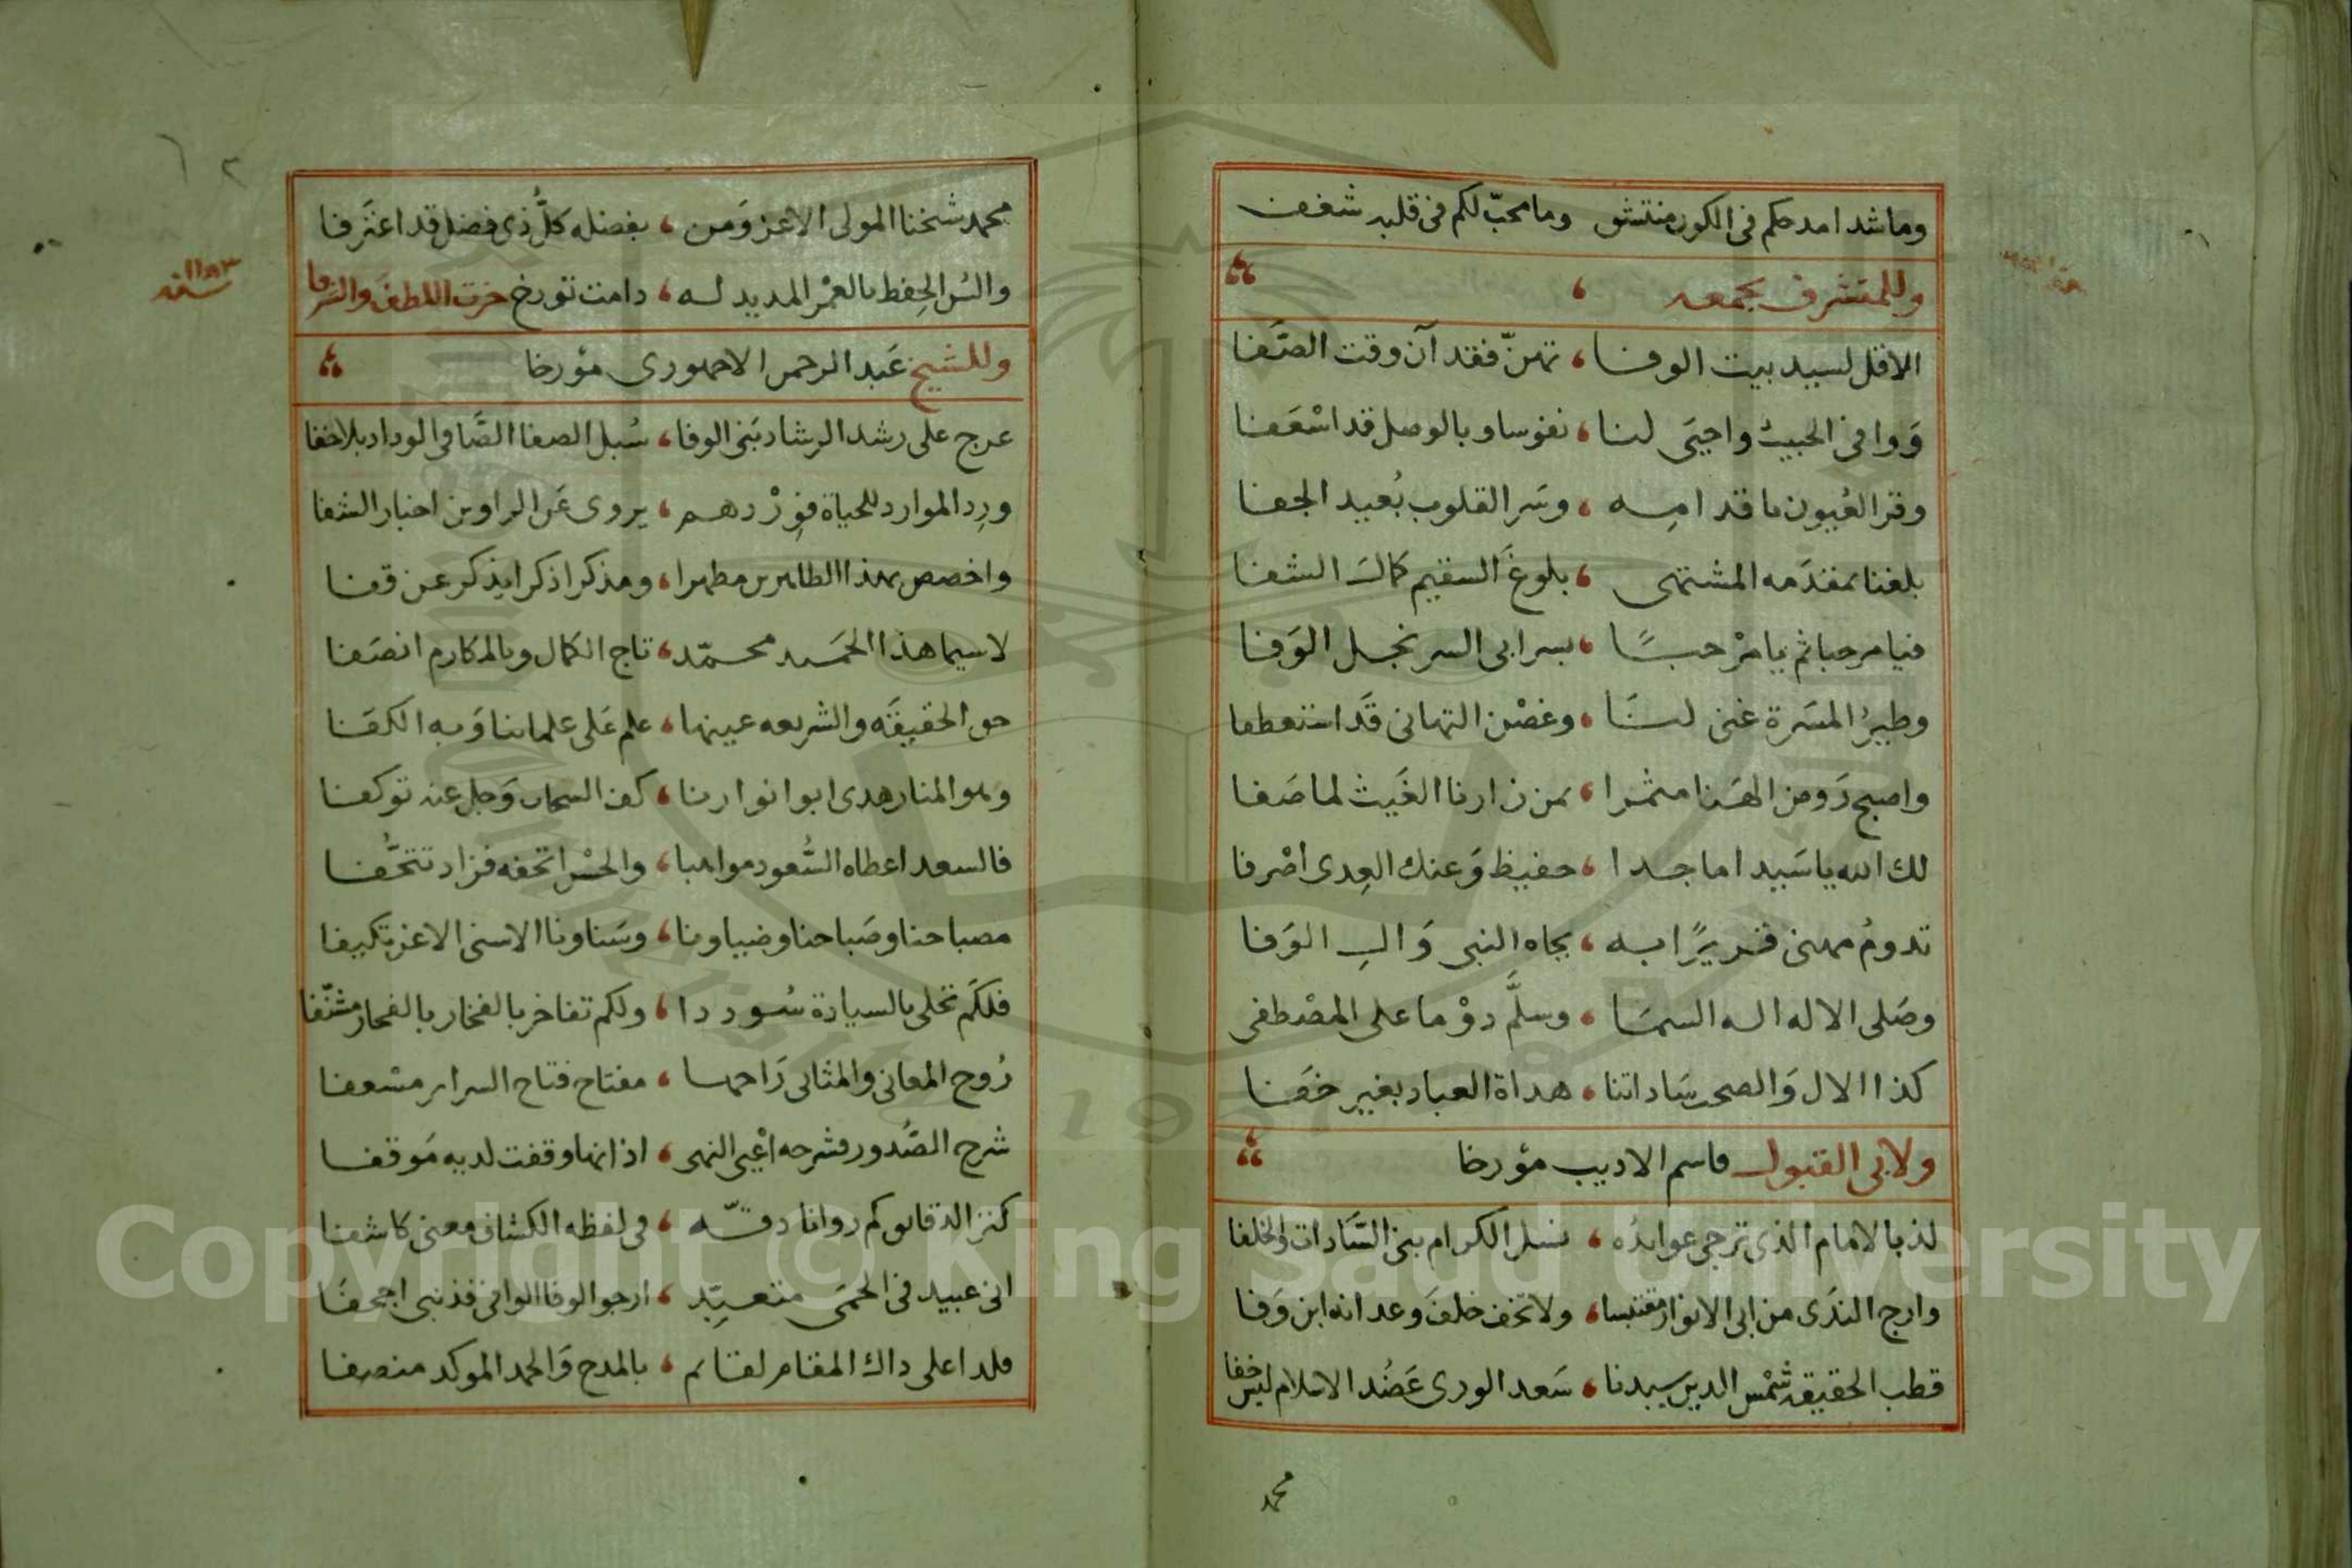 وما شدا مدحكم فى الكون منتشق وما محبّ لكم فى قلبه شغف
وللمتشرف بجمعه
الا قل لسيد بيت الوفا ، تهنّ فقد آن وقت الصَّفا
وَوافى الحبيب واحيَى لنا ، نفوسا وبالوصل قد اسْعَفا
وقر العُيون ما قد امه ، وسَر القلوب بُعيد الجفا
بلغنا بمقدَمه المشتهى ، بلوغَ السقيم كمال الشفا
فيا مرحبا ثم يا مرْحبًا ، بسر ابى السر نجل الوَفا
وطيرُ المسَرة غنى لنَا ، وغصْن التهانى قَد انتعطفا
واصبح رَوض الهَنا مثمرا ، بمن زارنا الغَيث لما صَفا
لك الله يا سَيدا ماجدا ، حفيظ وَعنك العِدى اصْرفا
تدومُ مهنى قريرًا به ، بجاه النبى وَال الوَفا
وصَلى الاله اله السمَا ، وسلَّم دوْما على المصْطفى
كذا الال وَالصحب سَاداتنا ، هداة العباد بغير خفَا
ولابى القبول قاسم الاديب مؤرخا
لذ بالامام الذى ترجى عوايدُه ، نسل الكرام بنى السَّادات والخلفا
وارج الندَى من ابى الانوار مقتبسا ، ولا تخف خلفَ وعد انه ابن وَفا
قطب الحقيقه شمْس الدين سيدنا ، سَعد الورى عَضُد الاسلام ليس خفا
محمد
محمد شخنا المولى الاعز وَمن ، بفضله كلُّ ذى فضل قد اعترَفا
والبس الحِفظ بالعمْر المديد له ، دامت تورخ حزت اللطفَ والشرفا
سنة ١١٨٣
وللشيخ عَبد الرحمن الاجهورى مؤرخا
عرج على رشد الرشاد بَنى الوفا ، سُبل الصفا الصَّافى الوداد بلا خفا
ورِد الموارد للحياة فزِرْ دهم ، يروى عَن الراوين اخبار الشفا
واخصص بهذا الطاهرين مطهرا ، ومذكرا ذكرا يذكر عن قفا
لاسيما هذا الحَميد محمّد ، تاج الكمال وبالمكارم انصَفا
حق الحقيقَه والشريعه عينها ، علم عَلى علمائنا وَبه الكفَا
وهو المنار هدى ابو انوارنا ، كف السحاب وَجل عنه توكفا
فالسعد اعطاه السُّعود مواهبا ، والحسْن اتحفه فزاد تتحُّفا
مصباحنا وصَباحنا وضياونا ، وسَناونا الاسنى الاعز تكيفا
فلكَم تحلى بالسيادة سُوددا ، ولكم تفاخر بالفخار بالفخار مشنّفا
رُوح المعانى والمثانى رَاحها ، مفتاح فتاح السراير مسعفا
شرح الصُّدور فشرحه اعْيى النهى ، اذ انها وقفت لديه مَوقفا
كنز الدقايق كم روانا دقّه ، فى لفظه الكشاف معنى كاشفا
انى عبيد فى الحمَى متعبِّد ، ارجو الوفا الوافى فذنبى اجحفَا
ولدا على ذاك المقام لقائم ، بالمدح وَالحمد الموكد منصفا
Copyright © King Saud University
1957